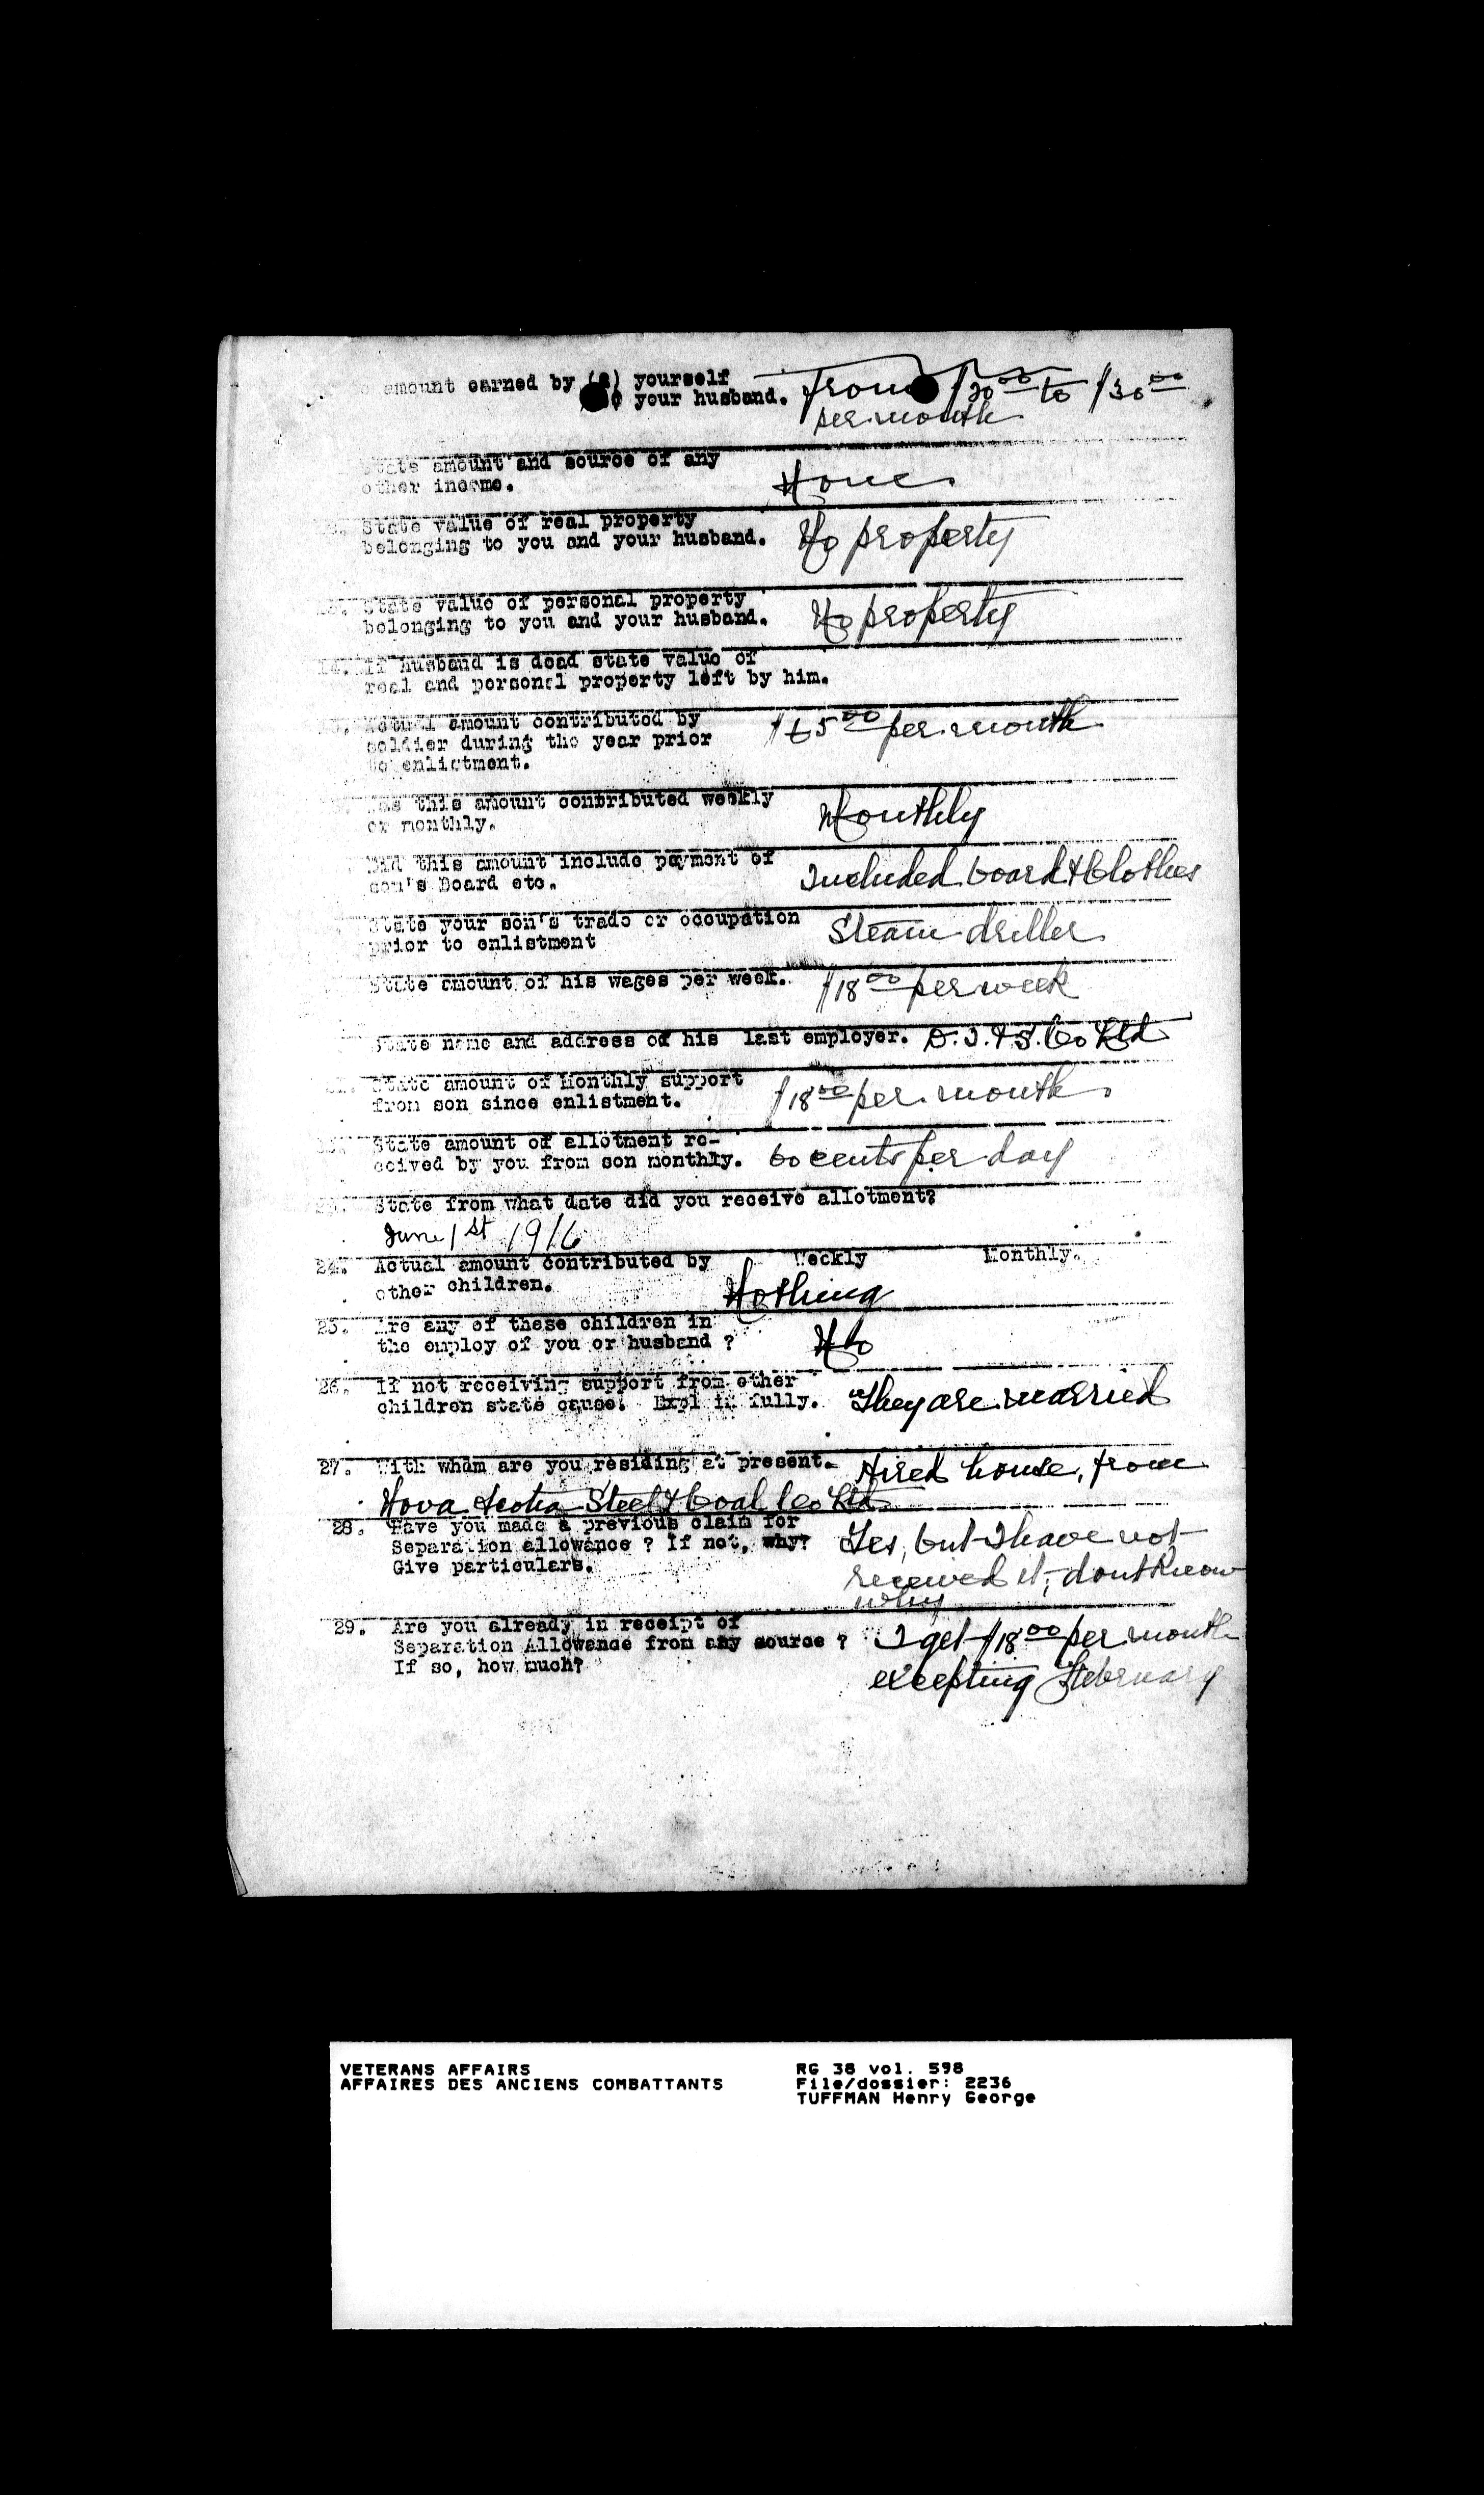 amount earned by (a) yourself
your husband. From $20⁰⁰ to $30⁰⁰
per month
State amount and source of any
other income. None
State value of real property
belonging to you and your husband. No property
State value of personal property
belonging to you and your husband. No property
14. If husband is dead state value of
real and personal property left by him.
Actual amount contributed by $65⁰⁰ per month
soldier during the year prior
to enlistment.
Was this amount contributed weekly
or monthly. Monthly
Did this amount include payment of
son's Board etc. Included board & Clothes
State your son's trade or occupation
prior to enlistment Steam driller
State amount of his wages per week. $18⁰⁰ per week
State name and address of his last employer. D. I. & S. Co Ltd
State amount of Monthly support
from son since enlistment. $18⁰⁰ per month
State amount of allotment re-
ceived by you from son monthly. 60 cents per day
State from what date did you receive allotment?
June 1st 1916
24. Actual amount contributed by Weekly Monthly.
other children. Nothing
25. Are any of these children in
the employ of you or husband ? No
26. If not receiving support from other
children state cause. Expl in fully. They are married
27. With whom are you residing at present. Hired house, from
Nova Scotia Steel & Coal Co Ltd
28. Have you made a previous claim for
Separation allowance ? If not, why? Yes, but I have not
Give particulars. received it, dont know
why
29. Are you already in receipt of
Separation Allowance from any source ? I get $18⁰⁰ per month
If so, how much? excepting February
VETERANS AFFAIRS RG 38 vol. 598
AFFAIRES DES ANCIENS COMBATTANTS File/dossier: 2236
TUFFMAN Henry George